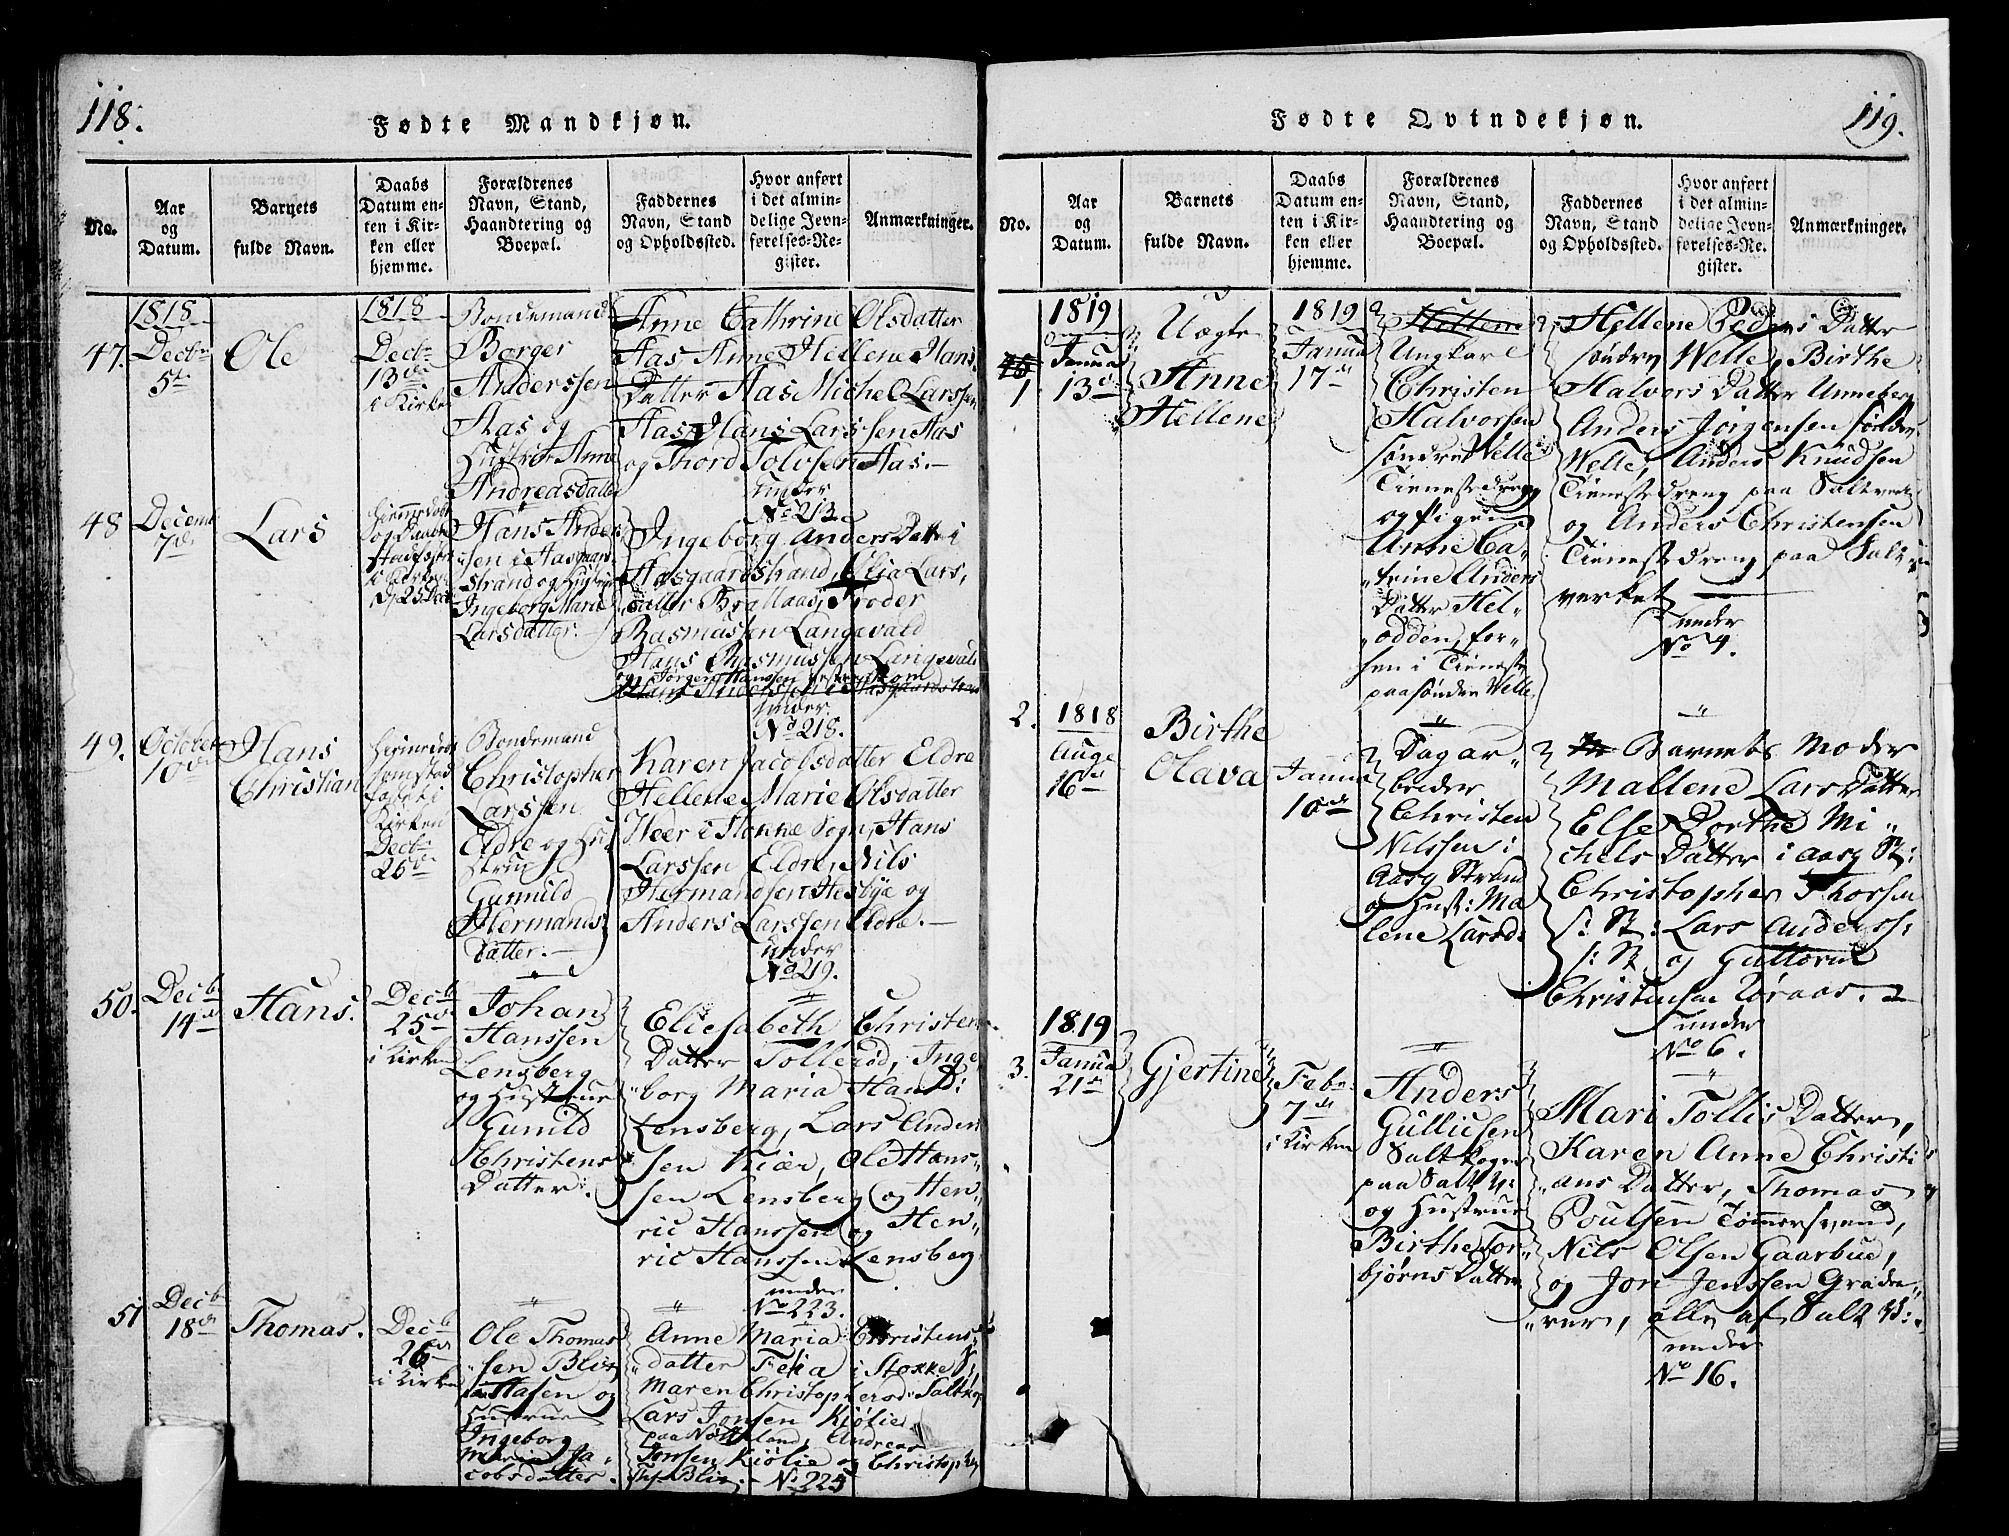 118.
Fødte Mandkjøn.
No.
Aar
og
Datum.
Barnets
fulde Navn.
Daabs
Datum en-
ten i Kir-
ken eller
hjemme.
Forældrenes
Navn, Stand,
Haandtering og
Boepæl.
Faddernes
Navn, Stand
og Opholdssted.
Hvor anført
i det almin-
delige Jevn-
førelses-Re-
gister.
Anmærkninger.
47.
1818
Decbr
5te
Ole
1818
Decbr
13de
i Kirken
Bondemand
Borger
Anderssen
Aas og
Hustrue Anne
Andreasdatter
Anne Cathrine Olsdatter
Aas Anne Hellene Hans
Datter Aas Michel Larssen
Aas, Hans Larssen Aas
og Thord Tolvsen Aas.—
under
No 213.
48
Decemb
7de
Lars
i Kirken
25 Dec
Hans Ander
sen i Aasgaard
strand og Hustrue
Ingeborg Maria
Larsdatter.
Ingeborg Anders Datter i
Aasgaardstrand, Elia Lars,
datter Brattaas, Froder
Rasmussen Langevald
Hans Rasmussen Langevald
og Jørgen Hanssen
Hans Anderssen i Aasgaardstrand
under
No 218.
49.
October
10de
Hans
Christian
Kirken
Decbr
26de
Bondemand
Christopher
Larssen
Eldre og Hu
strue
Gunnild
Hermands
Datter.—
Karen Jacobsdatter Eldre
Hellene Marie Olsdatter
Weer i Stokke Sogn, Hans
Larssen Eldre, Nils
Hermandsen Hesbye og
Anders Larssen Eldre.—
under
No 219.
50.
Decb
14de
Hans.
Decb
25de
i Kirken
Johan
Hanssen
Lensberg
og Hustrue
Gunild
Christens
Datter.
Eliesabeth Christens
Datter Tollerød, Inge
borg Maria Hans D:
Lensberg, Lars Ander
sen Kiær, Ole Hans
sen Lensberg og Hen
ric Hanssen og Hen
ric Hanssen Lensberg
under
No 223.
51
Decb
18de
Thomas.
Decb
26de
i Kirken
Ole Thomas
sen Blix
Hasen og
Hustrue
Ingeborg
Maria Ja
cobsdatter.
Anne Maria Christens
datter Feen i Stokke S,
Maren Christophersd: Saltkop
Lars Jonsen Kiølie
paa Nøtteland, Andreas
Jonsen Kiølie og Christopher
Blix.— No 225
119.
Fødte Qvindekjøn.
No.
Aar
og
Datum.
Barnets
fulde Navn.
Daabs
Datum en-
ten i Kir-
ken eller
hjemme.
Forældrenes
Navn, Stand,
Haandtering og
Boepæl.
Faddernes
Navn, Stand
og Opholdssted.
Hvor anført
i det almin-
delige Jevn-
førelses-Re-
gister.
Anmærkninger.
1
1819
Janua
13de
Uægte
Anne
Hellene
1819
Janua
17de
Hellene
Ungkarl
Christen
Halvorsen
søndre Welle
Tienestedreng
og Pigen
Anne Ca
trine Anders
Datter Hel
odden, for
sen i Tieneste
paa søndre Welle
Hellene Peders Datter
søndre Welle, Birthe
Halvors Datter Unneberg
Anders Jørgensen søndre
Welle, Anders Knudsen
Tienestedreng paa Saltverket
og Anders Christensen
Tienestedreng paa Salt
verket —
under
No 4.
2.
1818
Auge
16de
Birthe
Olava
Janua
10de
Dagar
beider
Christen
Nilssen i
Aasg Strand
og Hust: Ma
lene Larsd:
Barnets Moder
Mallene Lars Datter
Else Dorthe Mi
chels Datter i Aasg St:
Christopher Thorsen
i: St: Lars Anderss:
i: St og Guttorm
Christensen Toraas.
under
No 6.
3.
1819
Janua
21de
Gjertine
Feb:
7de
i Kirken
Anders
Gulliksen
Saltkoger
paa Salt V:
og Hustrue
Birthe Tor
bjørns Datter
Mari Tollis Datter,
Karen Anne Christi
ans Datter, Thomas
Poulsen Tømmersvend,
Nils Olsen Gaarbue,
og Jon Jenssen Grade
rer, alle af Salt V:
under
No 16.